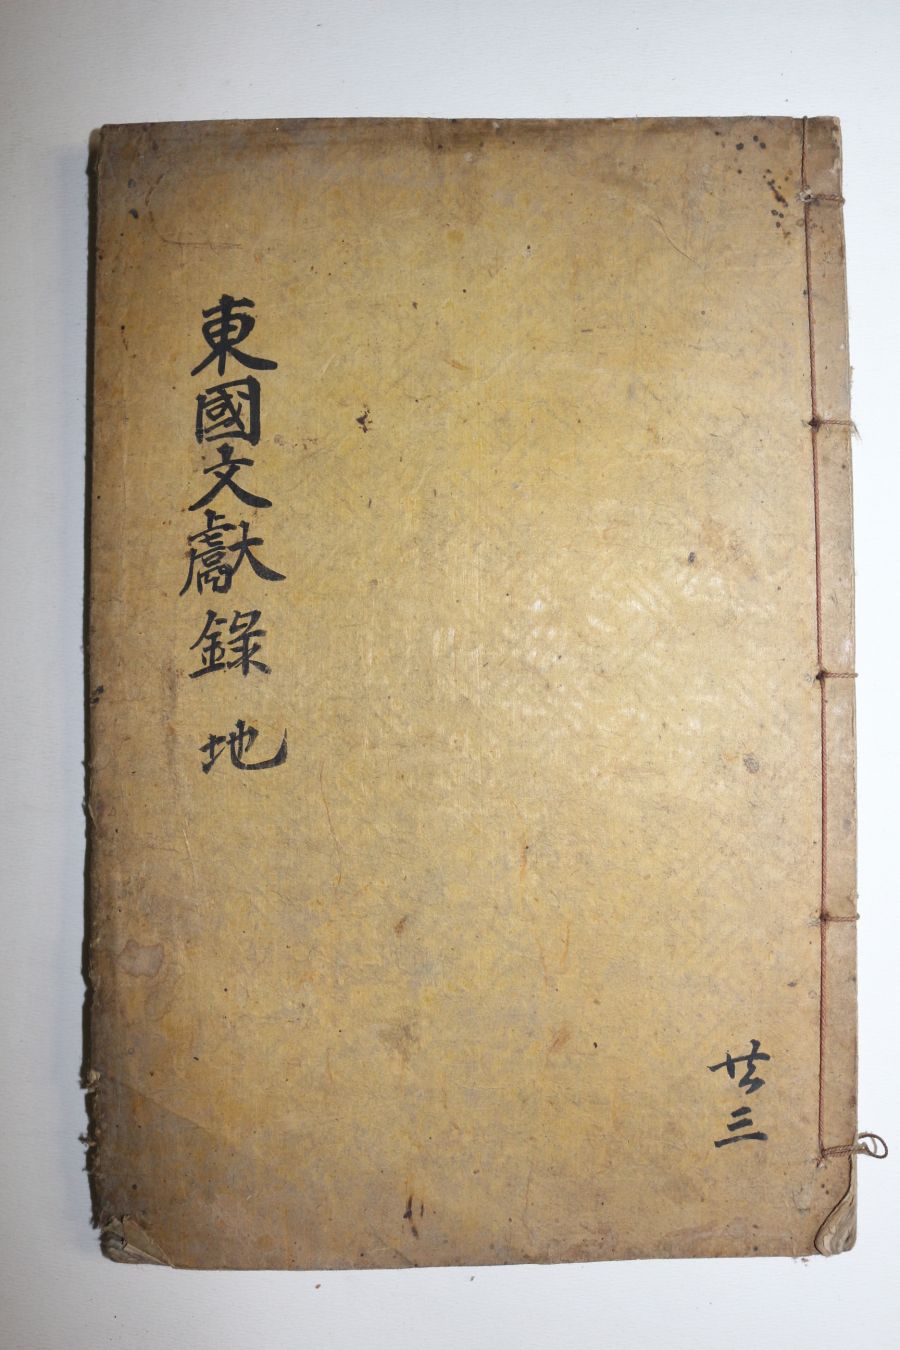 東國文獻錄 地
共三